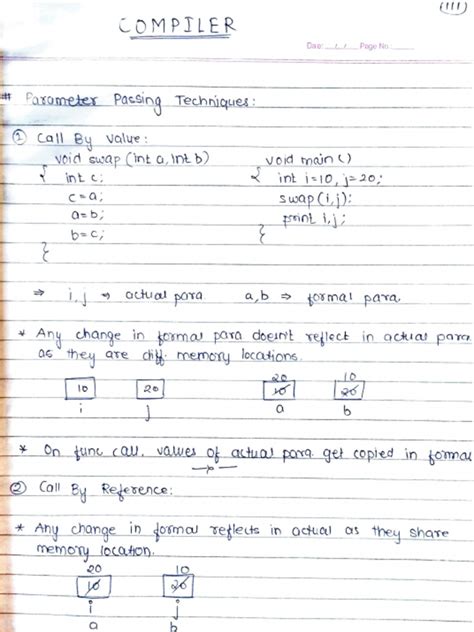 (111)
COMPILER
Date: __/__/__ Page No.:
# Parameter Passing Techniques:
① Call By Value:
void swap (int a, int b)    void main ()
{ int c;    { int i=10, j=20;
c=a;    swap (i,j);
a=b;    print i,j;
b=c;    }
}
⇒ i,j → actual para    a,b ⇒ formal para
* Any change in formal para doesn't reflect in actual para
as they are diff. memory locations.
20    10
10    20    10    20
i    j    a    b
* On func call, values of actual para get copied in formal
② Call By Reference:
* Any change in formal reflects in actual as they share
memory location.
20    10
10    20
i    j
a    b